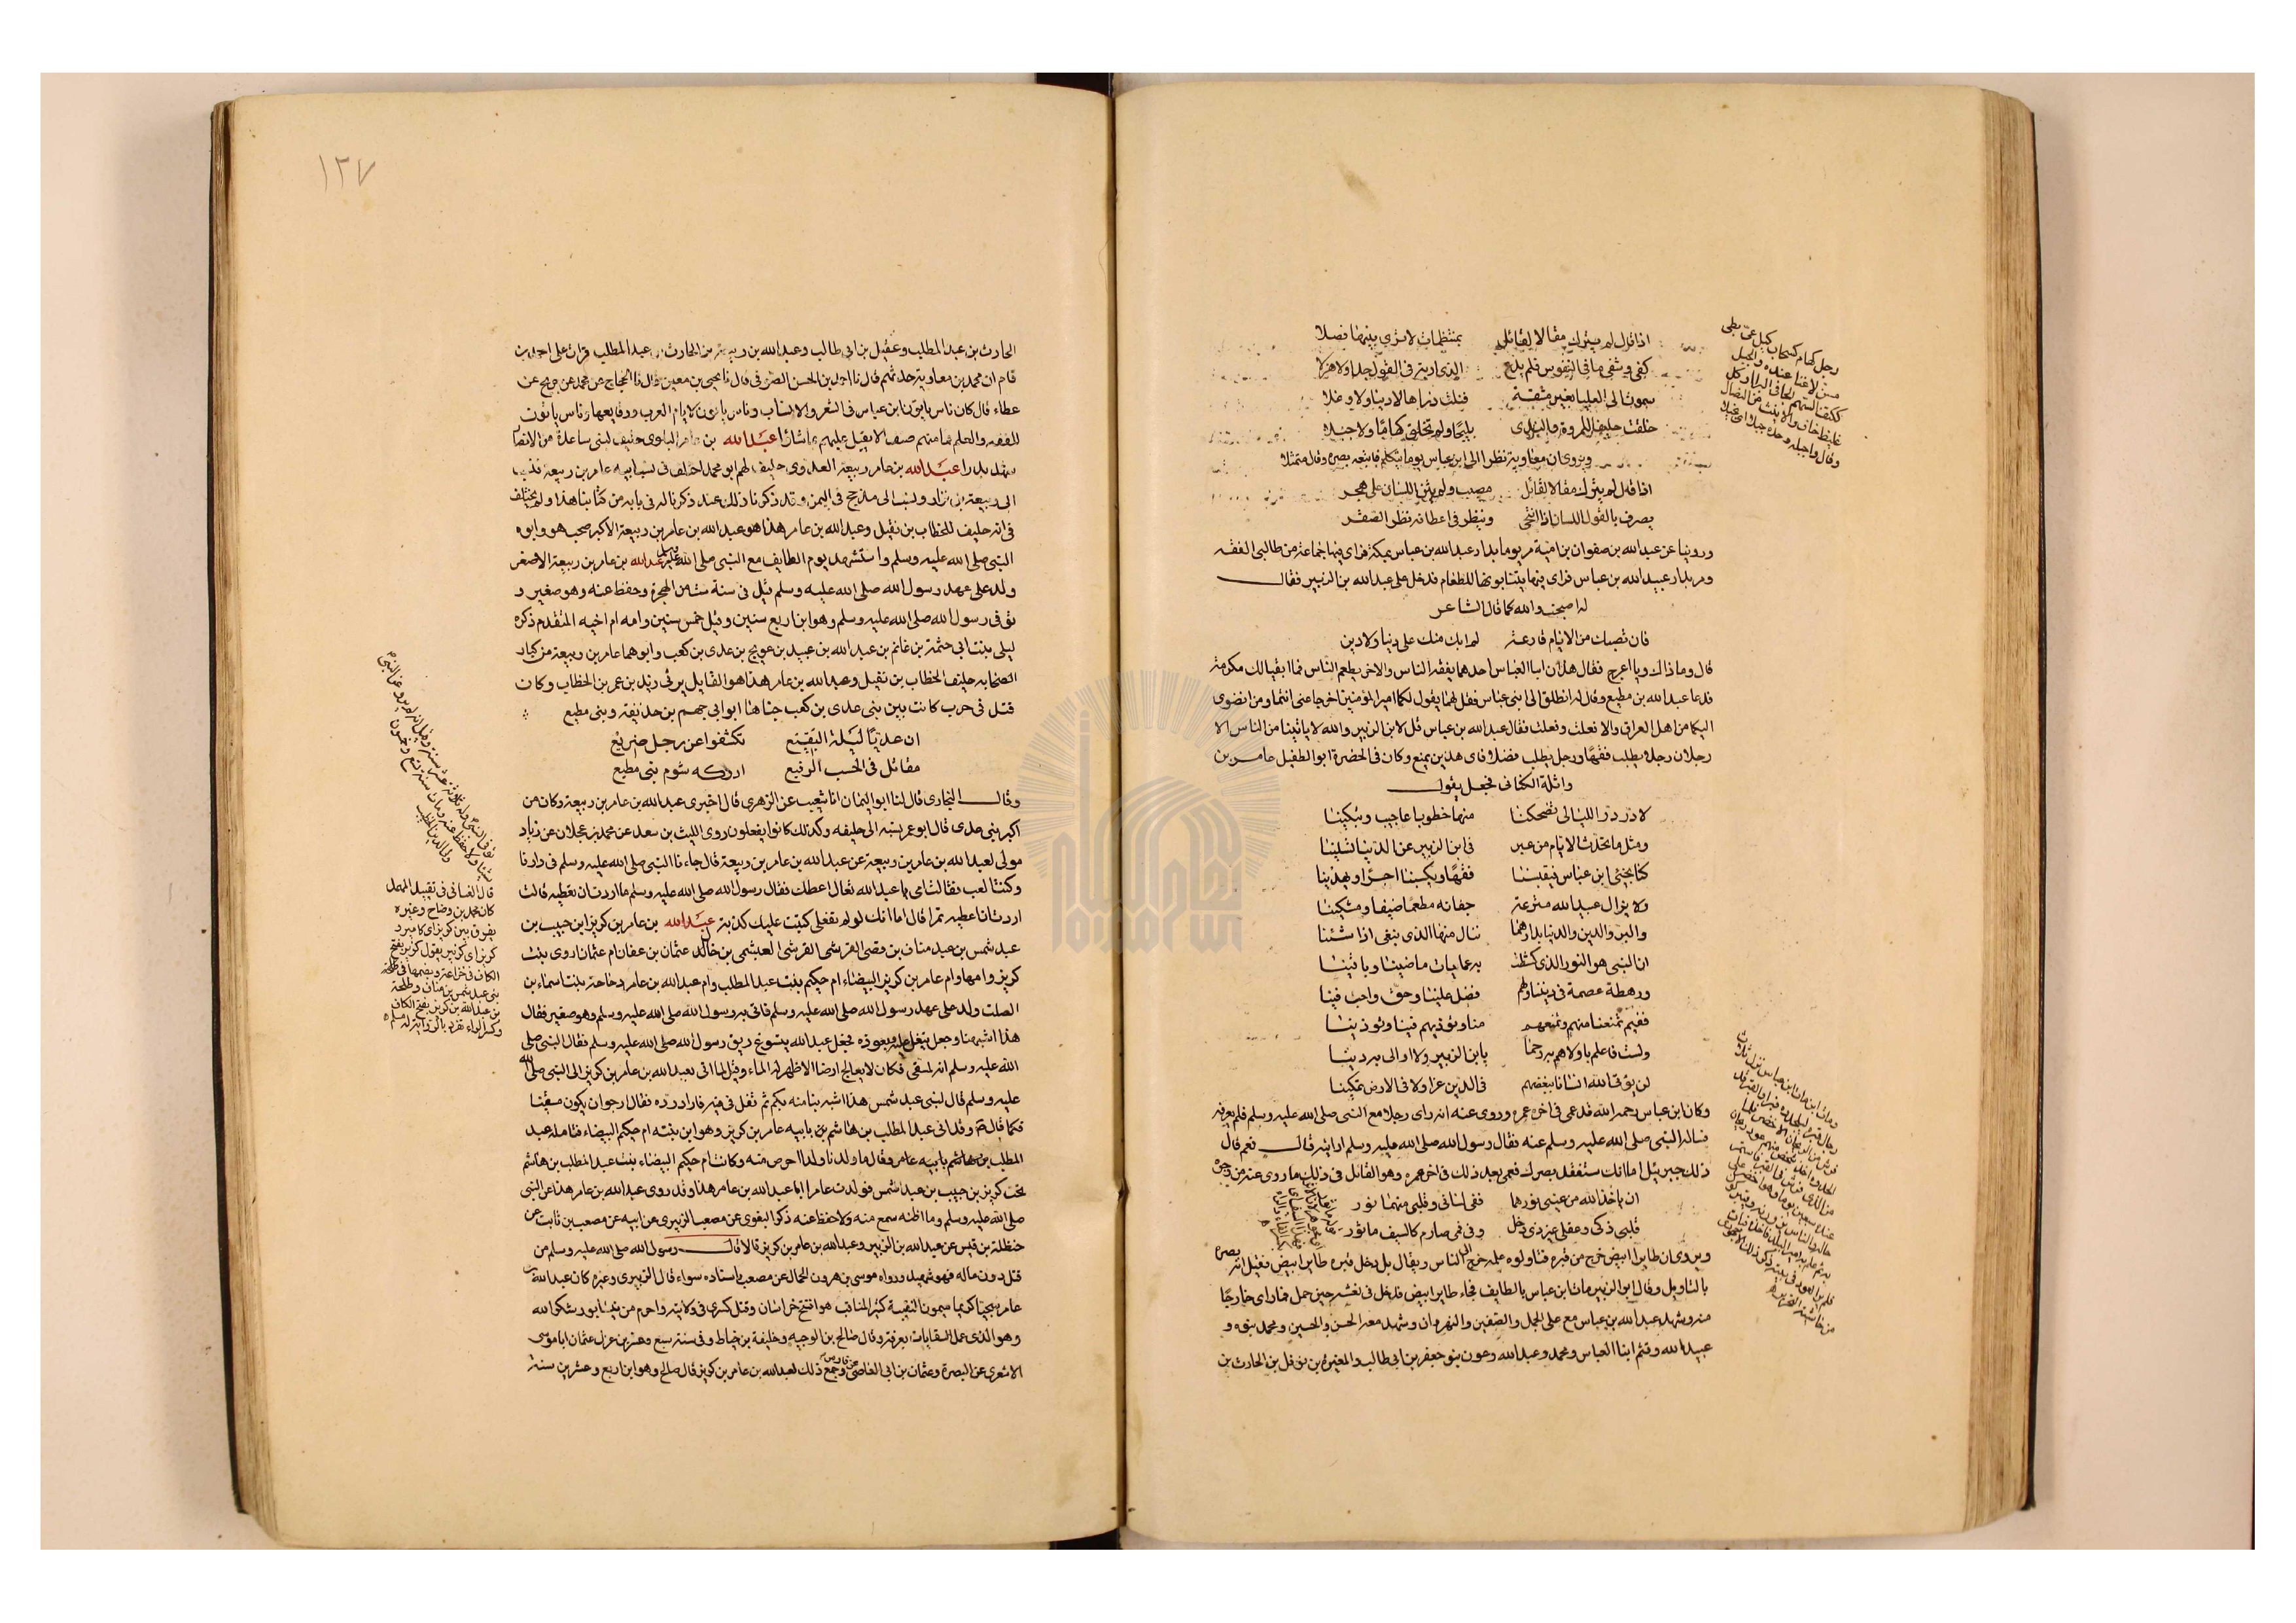 اذا قال لم يترك مقالا لقائل بمنتظمات لا ترى بينها فصلا
كفى وشفى ما فى النفوس فلم يدع لذى اربة فى القول جدا ولا هزلا
سموت الى العليا بغير مشقة فنلت ذراها لا دنيا ولا وغلا
خلقت حليفا للمروة والندى بليجا ولم تخلق كهاما ولا جبلا
ويروى ان معاوية نظر الى ابن عباس يوما يتكلم فاتبعه بصره وقال متمثلا
اذا قال لم يترك مقالا لقائل مصيب ولم يثن اللسان على هجر
يصرف بالقول اللسان اذا انتحى وينظر فى اعطافه نظر الصقر
وروينا عن عبد الله بن صفوان بن امية مر يوما بدار عبد الله بن عباس بمكة فراى فيها جماعة من طالبى الفقه
ومر بدار عبيد الله بن عباس فراى فيها يتنابونها للطعام فدخل على عبد الله بن الزبير فقال
له اصبحت والله كما قال الشاعر
فان تصبك من الايام قارعة لم ابك منك على دنيا ولا دين
قال وما ذاك ويا اعرج فقال هذان ابنا العباس احدهما يفقه الناس والاخر يطعم الناس فما ابقيا لك مكرمة
فدعا عبد الله بن مطيع وقال له انطلق الى ابنى عباس فقل لهما يقول لكما امير المؤمنين اخرجا عنى انتما ومن انضوى
اليكما من اهل العراق والا فعلت وفعلت فقال عبد الله بن عباس قل لابن الزبير والله لا ياتينا من الناس الا
رجلان رجل يطلب فقها ورجل يطلب فضلا فاى هذين يمنع وكان فى الحضرة ابو الطفيل عامر بن
واثلة الكنانى فجعل يقول
لا در در الليالى تضحكنا منها خطوب اعاجيب وتبكينا
ومثل ما تحدث الايام من عبر فى ابن الزبير عن الدنيا تسلينا
كنا نجئ ابن عباس فيقبسنا فقها ويكسبنا اجرا ويهدينا
ولا يزال عبيد الله مترعة جفانه مطعما ضيفا ومسكينا
والبر والدين والدنيا بدارهما ننال منها الذى نبغى اذا شئنا
ان النبى هو النور الذى كشطت به عمايات ماضينا وباقينا
ورهطه عصمة فى ديننا ولهم فضل علينا وحق واجب فينا
ففيم تمنعنا منهم وتمنعهم منا وتؤذيهم فينا وتؤذينا
ولست فاعلم باولاهم به رحما يابن الزبير ولا اولى به دينا
لن يؤتى الله انسانا ببغضهم فى الدين عزا ولا فى الارض تمكينا
وكان ابن عباس رحمه الله قد عمى فى اخر عمره وروى عنه انه راى رجلا مع النبى صلى الله عليه وسلم فلم يعرفه
فسال النبى صلى الله عليه وسلم عنه فقال رسول الله صلى الله عليه وسلم ارايته قال نعم قال
ذلك جبريل اما انك ستفقد بصرك فعمى بعد ذلك فى اخر عمره وهو القائل فى ذلك ما روى عنه من وجوه
ان ياخذ الله من عينى نورهما ففى لسانى وقلبى منهما نور
قلبى ذكى وعقلى غير ذى دخل وفى فمى صارم كالسيف ماثور
ويروى ان طايرا ابيض خرج من قبره فتاولوه علمه خرج الى الناس ويقال بل دخل قبره طاير ابيض فقيل انه بصره
بالتاويل وقال ابو الزبير مات ابن عباس بالطايف فجاء طاير ابيض فدخل فى نعشه حين حمل فما راى خارجا
منه وشهد عبد الله بن عباس مع على الجمل والصفين والنهروان وشهد معه الحسن والحسين ومحمد بنوه و
عبيد الله وقثم ابنا العباس ومحمد وعبد الله وعون بنو جعفر بن ابى طالب والمغيرة بن نوفل بن الحارث بن
١٣٧
الحارث بن عبد المطلب وعقيل بن ابى طالب وعبد الله بن ربيعة بن الحارث بن عبد المطلب قرات على احمد بن
قاسم ان محمد بن معاوية حدثهم قال نا احمد بن الحسن الصوفى قال نا يحيى بن معين قال نا الحجاج بن محمد عن جريج عن
عطاء قال كان ناس ياتون ابن عباس فى الشعر والانساب وناس ياتون لايام العرب ووقايعها وناس ياتون
للفقه والعلم فما منهم صنف الا يقبل عليهم بما شاؤا عبد الله بن عامر البلوى حليف لبنى ساعدة من الانصار
شهد بدرا عبد الله بن عامر ربيعة العدوى حليف لهم ابو محمد اختلف فى نسب ابيه عامر بن ربيعة فنسب
الى ربيعة بن نزار ونسب الى مذحج فى اليمن وقد ذكرنا ذلك عند ذكرنا له فى بابه من كتابنا هذا ولم يختلف
فى انه حليف للخطاب بن نفيل وعبد الله بن عامر هذا هو عبد الله بن عامر بن ربيعة الاكبر صحب هو وابوه
النبى صلى الله عليه وسلم واستشهد يوم الطايف مع النبى صلى الله عليه وسلم عبد الله بن عامر بن ربيعة الاصغر
ولد على عهد رسول الله صلى الله عليه وسلم قيل فى سنة ست من الهجرة وحفظ عنه وهو صغير و
توفى رسول الله صلى الله عليه وسلم وهو ابن اربع سنين وقيل خمس سنين وامه ام اخيه المتقدم ذكره
ليلى بنت ابى حثمة بن غانم بن عبد الله بن عبيد بن عويج بن عدى بن كعب وابوهما عامر بن ربيعة من كبار
الصحابه حليف الخطاب بن نفيل وعبد الله بن عامر هذا هو القايل يرثى زيد بن عمر بن الخطاب وكان
قتل فى حرب كانت بين بنى عدى بن كعب جناها ابو ابى جهم بن حذيفة وبنى مطيع
ان عديا ليلة البقيع تكشفوا عن رجل ضريع
مقاتل فى الحسب الرفيع ادركه شوم بنى مطيع
وقال البخارى قال لنا ابو اليمان انا شعيب عن الزهرى قال اخبرنى عبد الله بن عامر بن ربيعة وكان من
اكبر بنى عدى قال ابو عمر نسبه الى حليفه وكذلك كانوا يفعلون روى الليث بن سعد عن محمد بن عجلان عن زياد
مولى لعبد الله بن عامر بن ربيعة عن عبد الله بن عامر بن ربيعة قال جاءنا النبى صلى الله عليه وسلم فى دارنا
وكنت العب فقالت امى يا عبد الله تعال اعطك فقال رسول الله صلى الله عليه وسلم ما اردت ان تعطيه قالت
اردت ان اعطيه تمرا قال اما انك لو لم تفعلى كتبت عليك كذبة عبد الله بن عامر بن كريز ابن حبيب بن
عبد شمس بن عبد مناف بن قصى القرشى العبشمى بن خال عثمان بن عفان ام عثمان اروى بنت
كريز وامها وام عامر بن كريز البيضاء ام حكيم بنت عبد المطلب وام عبد الله بن عامر دجاجة بنت اسماء بن
الصلت ولد على عهد رسول الله صلى الله عليه وسلم فاتى به رسول الله صلى الله عليه وسلم وهو صغير فقال
هذا اشبهنا وجعل يتفل عليه ويعوذه فجعل عبد الله يتسوغ ريق رسول الله صلى الله عليه وسلم فقال النبى صلى
الله عليه وسلم انه لمسقى فكان لا يعالج ارضا الا ظهر له الماء وقيل لما اتى بعبد الله بن عامر بن كريز الى النبى صلى الله
عليه وسلم قال لبنى عبد شمس هذا اشبه بنا منه بكم ثم تفل فى فيه فازدرده فقال ارجو ان يكون مسقيا
فكما قال وقد اتى عبد المطلب بن هاشم بابيه عامر بن كريز وهو ابن بنته ام حكيم البيضاء فتامله عبد
المطلب بن هاشم بابيه عامر وقال ما ولدنا ولدا احرص منه وكانت ام حكيم البيضاء بنت عبد المطلب بن هاشم
تحت كريز بن حبيب بن عبد شمس فولدت عامرا ابا عبد الله بن عامر هذا وقد روى عبد الله بن عامر هذا عن النبى
صلى الله عليه وسلم وما اظنه سمع منه ولا حفظ عنه ذكر البغوى عن مصعب الزبيرى عن ابيه عن مصعب بن ثابت عن
حنظلة بن قيس عن عبد الله بن الزبير وعبد الله بن عامر بن كريز قالا قال رسول الله صلى الله عليه وسلم من
قتل دون ماله فهو شهيد ورواه موسى بن هرون الحمال عن مصعب باسناده سواء قال الزبيرى وغيره كان عبد الله بن
عامر سخيا كريما ميمون النقيبة كثير المناقب هو افتتح خراسان وقتل كسرى فى ولايته واحرم من نيسابور شكرا لله
وهو الذى عمل السقايات بعرفة وقال صالح بن الوجيه وخليفة بن خياط وفى سنة تسع وعشرين عزل عثمان ابا موسى
الاشعرى عن البصرة وعثمان بن ابى العاص عن فارس وجمع ذلك لعبد الله بن عامر بن كريز قال صالح وهو ابن اربع وعشرين سنة
قال الغسانى فى تقييد المهمل
كان محمد بن وضاح وغيره